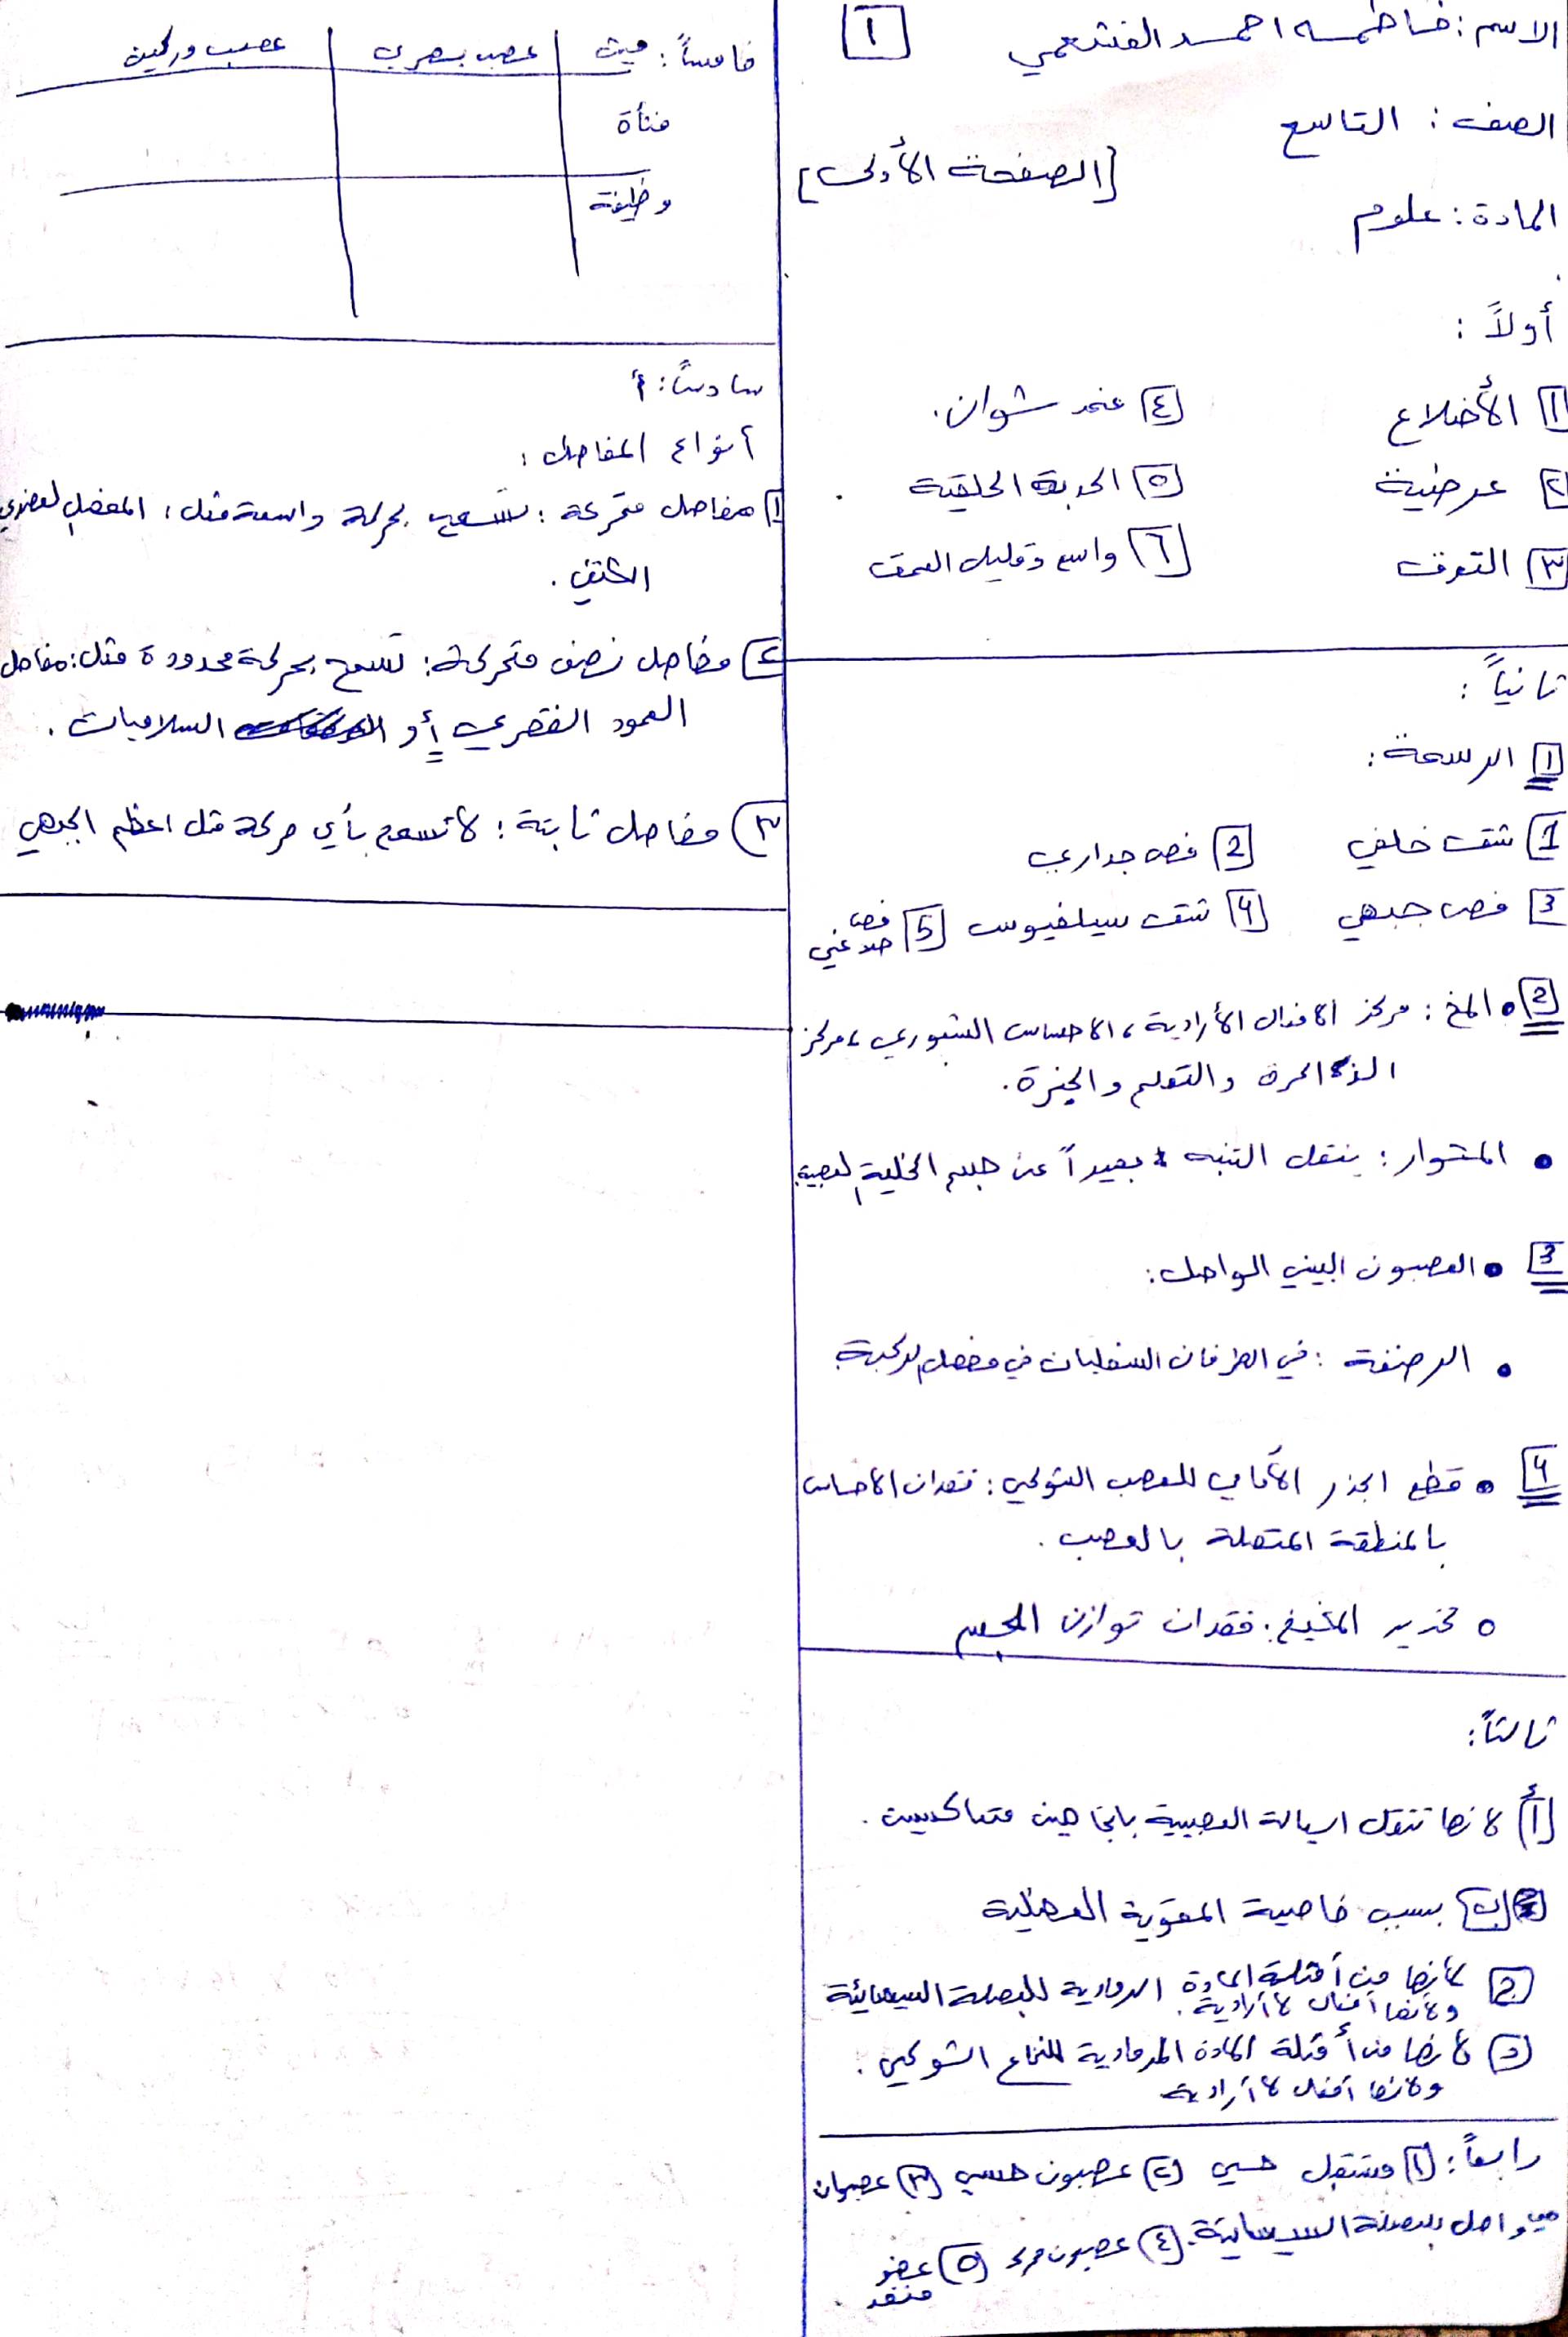 الاسم: فاطمه احمد الغشعمي
[1]
الصف: التاسع
[الصفحة الأولى]
المادة: علوم
أولاً:
[١] الأضلاع
[٤] عند شوان.
[٢] عرضية
[٥] الحدبة الحلقية
[٣] التعرق
[٦] واسع وقليل العمق
ثانياً:
[1] الرسمة:
[1] شق خلفي [2] فص جداري
[3] فص جبهي [4] شق سيلفيوس [5] فص صدغي
[2] • المخ: مركز الافعال الأرادية، الاحساس الشعوري، مركز
الذاكرة والتعلم والخبرة.
• المحوار: ينقل التنبه بعيداً عن جسم الخلية العصبية
[3] • العصبون البيني الواصل:
• الرضفة: في الطرفان السفليان في مفصل الركبة
[4] • قطع الجذر الأمامي للعصب الشوكي: فقدان الاحساس
بالمنطقة المتصلة بالعصب.
• تخدير المخيخ: فقدان توازن الجسم
ثالثاً:
[أ] لانها تنقل السيالة العصبية باتجاهين متعاكسين.
[ب] بسبب خاصية المقوية العضلية
[ج] لأنها من أمثلة المادة الرمادية للبصلة السيسائية
ولانها أفعال لا أرادية.
[د] لأنها من أمثلة المادة الرمادية للنخاع الشوكي.
ولانها أفعال لا أرادية
رابعاً: (١) مستقبل حسي (٢) عصبون حسي (٣) عصبون
واصل بالبصلة السيسائية. (٤) عصبون محرك (٥) عضو
منفذ.
خامساً: حيث | عصب بصري | عصب وركين
منشأة
وظيفة
سادساً: أ
أنواع المفاصل:
[١] مفاصل متحركة: تسمح بحركة واسعة مثل: المفصل العضدي
الكتفي.
(٢) مفاصل نصف متحركة: تسمح بحركة محدودة مثل: مفاصل
العمود الفقري أو السلاميات.
(٣) مفاصل ثابتة: لا تسمح بأي حركة مثل اعظم الجبهي